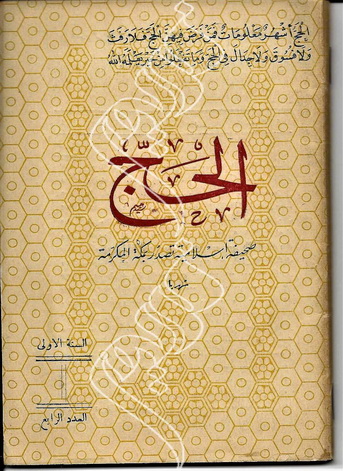 الحج أشهر معلومات فمن فرض فيهن الحج فلا رفث
ولا فسوق ولا جدال في الحج وما تفعلوا من خير يعلمه الله
الحج
صحيفة إسلامية تصدر بمكة المكرمة
شهريا
السنة الأولى
العدد الرابع